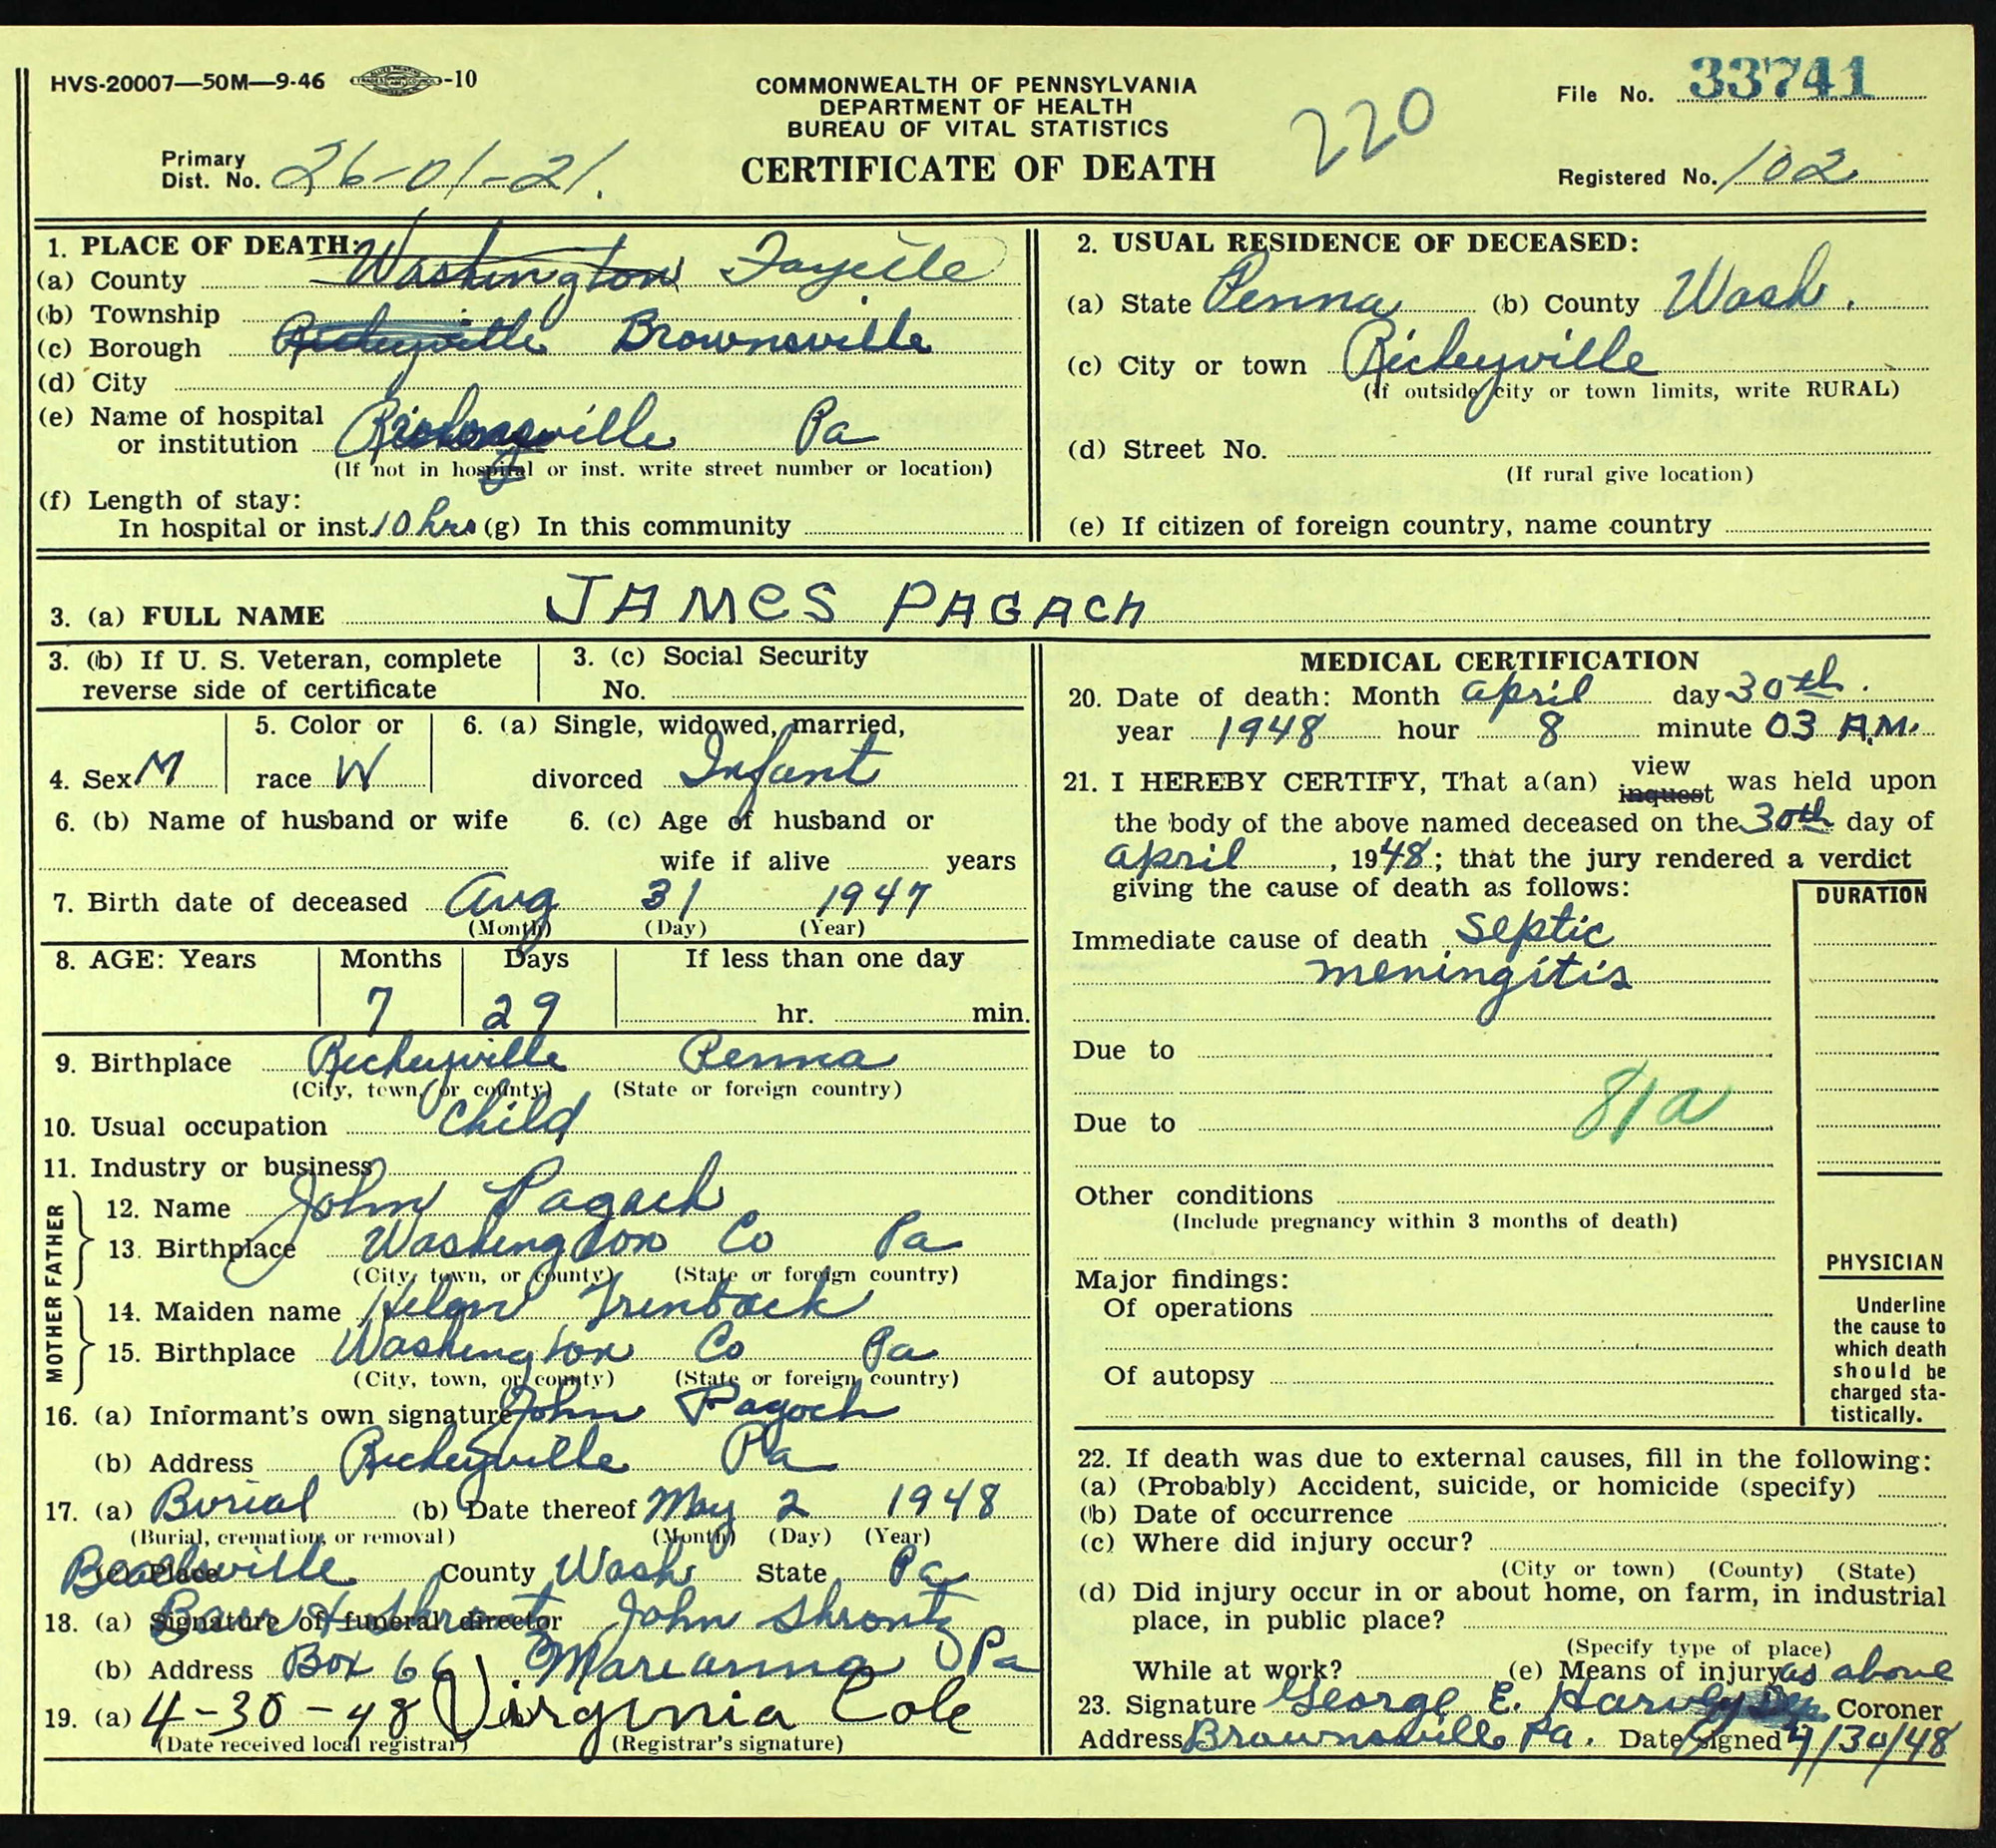 HVS-20007—50M—9-46 -10
COMMONWEALTH OF PENNSYLVANIA
DEPARTMENT OF HEALTH
BUREAU OF VITAL STATISTICS
CERTIFICATE OF DEATH
220
File No. 33741
Primary
Dist. No. 26-01-21.
Registered No. 102
1. PLACE OF DEATH:
(a) County Washington Fayette
(b) Township
(c) Borough Richeyville Brownsville
(d) City
(e) Name of hospital
or institution Pa
(If not in hospital or inst. write street number or location)
(f) Length of stay:
In hospital or inst. 10 hrs (g) In this community
2. USUAL RESIDENCE OF DECEASED:
(a) State Penna (b) County Wash.
(c) City or town Richeyville
(If outside city or town limits, write RURAL)
(d) Street No.
(If rural give location)
(e) If citizen of foreign country, name country
3. (a) FULL NAME JAMES PAGACH
3. (b) If U. S. Veteran, complete
reverse side of certificate
3. (c) Social Security
No.
4. Sex M
5. Color or
race W
6. (a) Single, widowed, married,
divorced Infant
6. (b) Name of husband or wife
6. (c) Age of husband or
wife if alive years
7. Birth date of deceased Aug 31 1947
(Month) (Day) (Year)
8. AGE: Years Months Days If less than one day
7 29 hr. min.
9. Birthplace Richeyville Penna
(City, town, or county) (State or foreign country)
10. Usual occupation Child
11. Industry or business
FATHER
12. Name John Pagach
13. Birthplace Washington Co Pa
(City, town, or county) (State or foreign country)
MOTHER
14. Maiden name Helen
15. Birthplace Washington Co Pa
(City, town, or county) (State or foreign country)
16. (a) Informant's own signature John Pagoch
(b) Address Richeyville Pa
17. (a) Burial (b) Date thereof May 2 1948
(Burial, cremation, or removal) (Month) (Day) (Year)
(c) Place Beallsville County Wash State Pa
18. (a) Signature of funeral director Barr & Shrontz John Shrontz
(b) Address Box 66 Marianna Pa
19. (a) 4-30-48 Virginia Cole
(Date received local registrar) (Registrar's signature)
MEDICAL CERTIFICATION
20. Date of death: Month April day 30th.
year 1948 hour 8 minute 03 A.M.
21. I HEREBY CERTIFY, That a(an) view inquest was held upon
the body of the above named deceased on the 30th day of
April, 1948; that the jury rendered a verdict
giving the cause of death as follows:
DURATION
Immediate cause of death Septic
meningitis
Due to
81a
Due to
Other conditions
(Include pregnancy within 3 months of death)
Major findings:
Of operations
Of autopsy
PHYSICIAN
Underline
the cause to
which death
should be
charged sta-
tistically.
22. If death was due to external causes, fill in the following:
(a) (Probably) Accident, suicide, or homicide (specify)
(b) Date of occurrence
(c) Where did injury occur?
(City or town) (County) (State)
(d) Did injury occur in or about home, on farm, in industrial
place, in public place?
(Specify type of place)
While at work? (e) Means of injury as above
23. Signature George E. Harvey Dep. Coroner
Address Brownsville Pa. Date signed 4/30/48